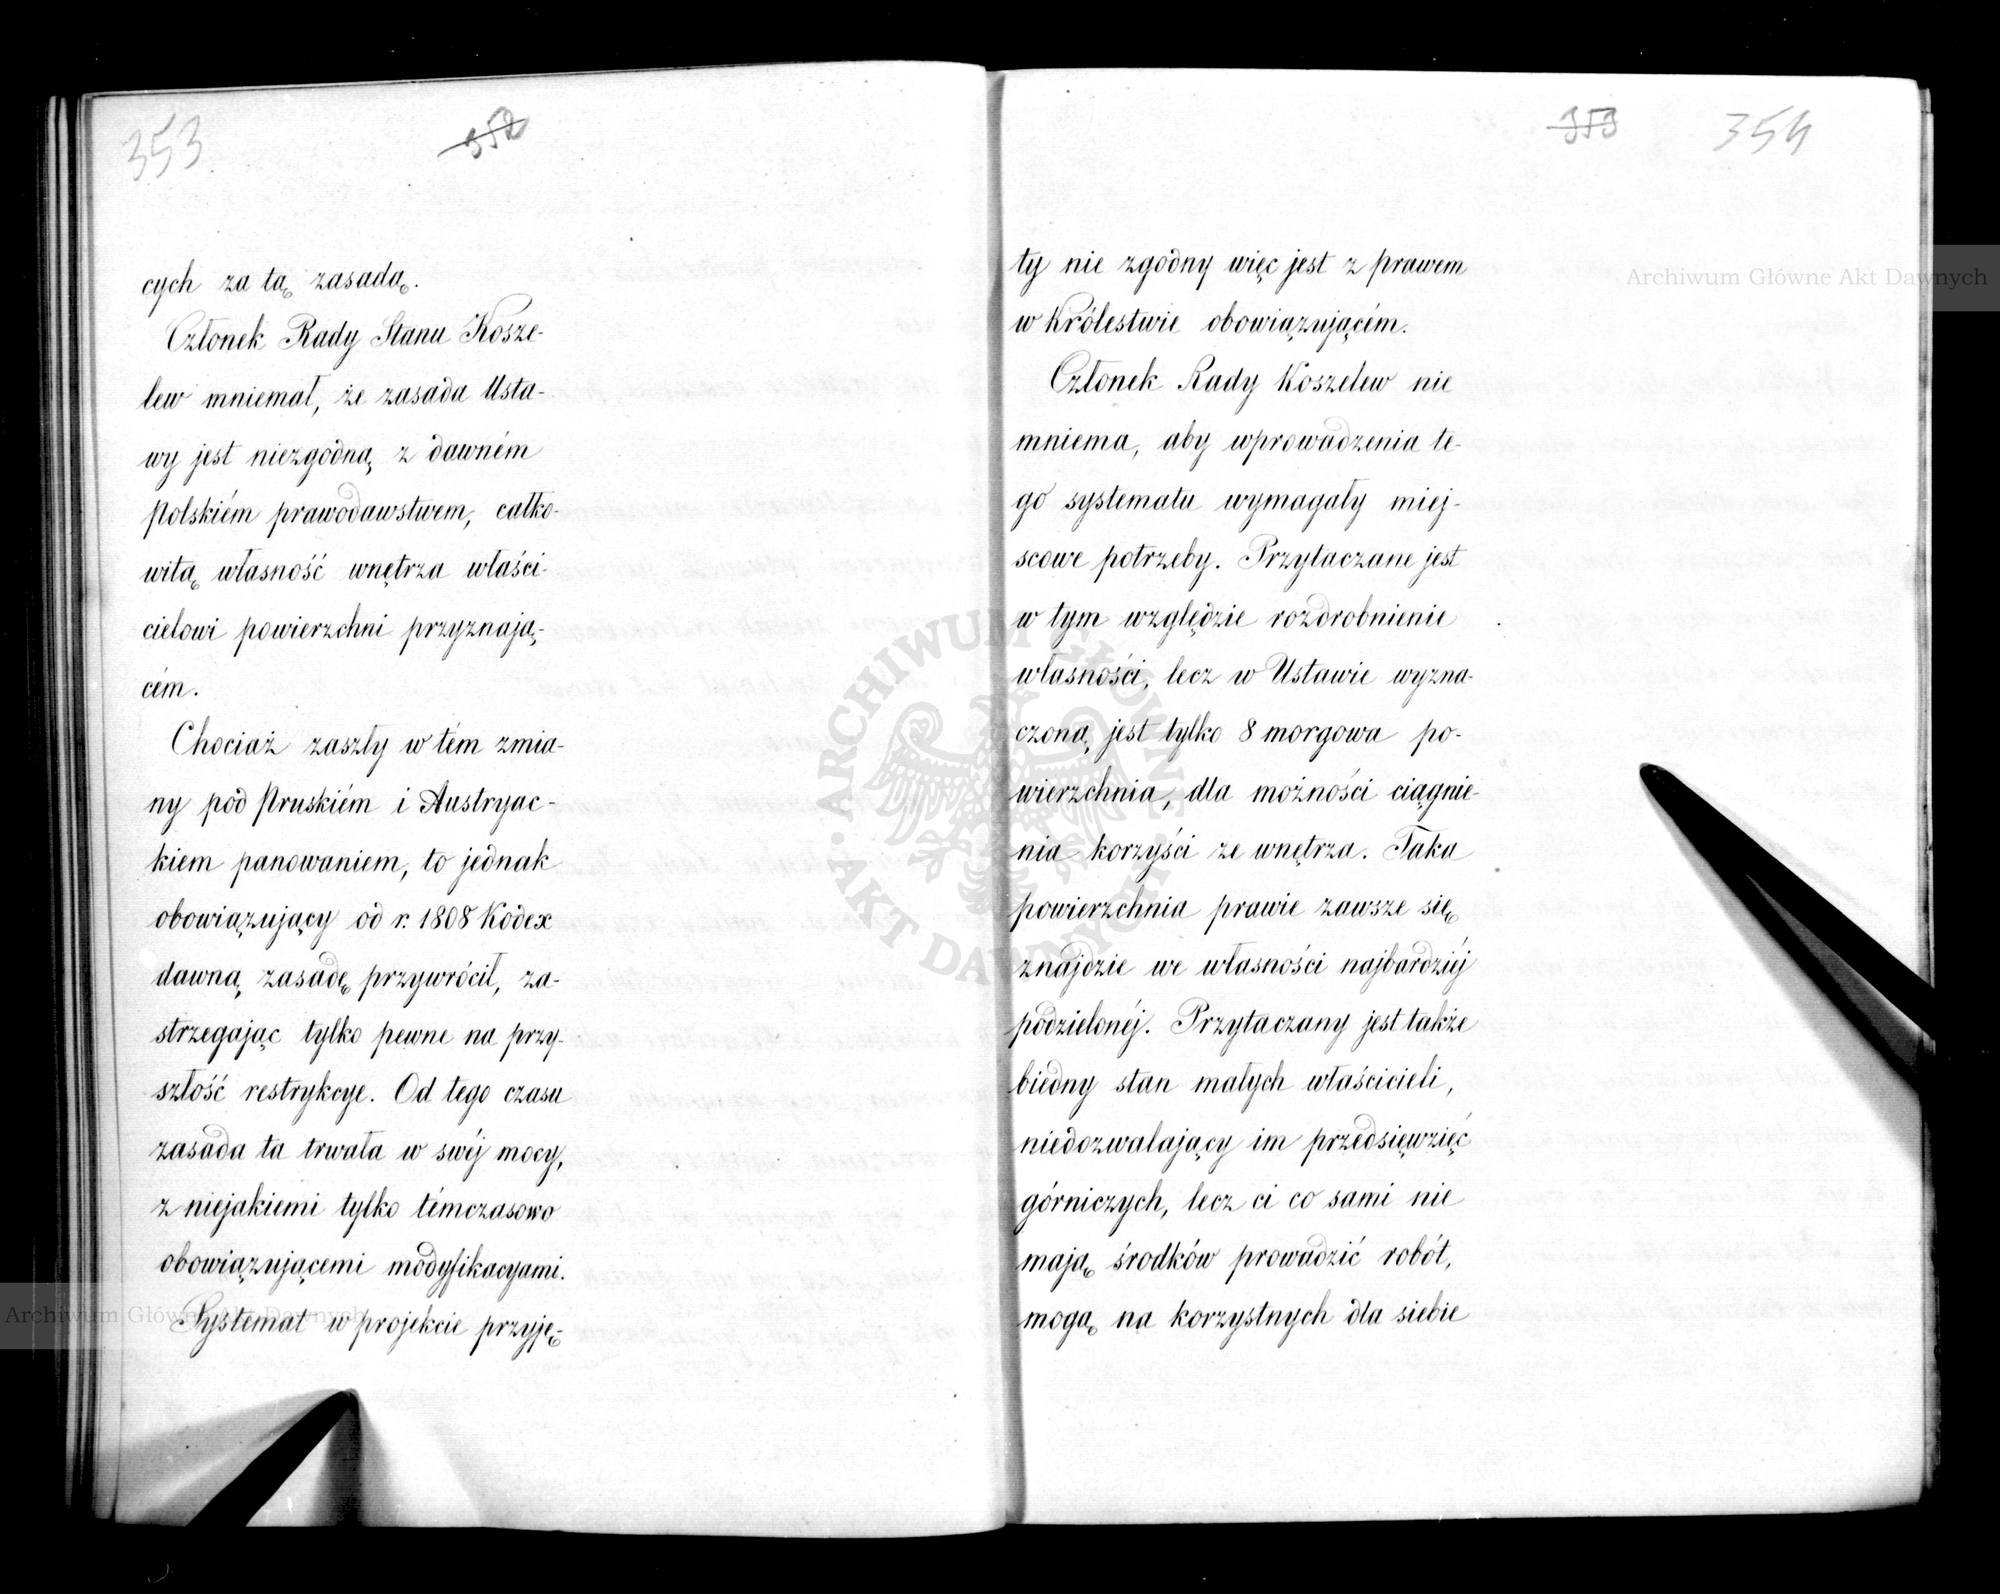 353
352
cych za tą zasadą.
Członek Rady Stanu Kosze-
lew mniemał, że zasada Usta-
wy jest niezgodną z dawném
Polskiém prawodawstwem, całko-
witą własność wnętrza właści-
cielowi powierzchni przyznają-
cém.
Chociaż zaszły w tém zmia-
ny pod Pruskiém i Austryac-
kiem panowaniem, to jednak
obowiązujący od r. 1808 Kodex
dawną zasadę przywrócił, za-
strzegając tylko pewne na przy-
szłość restrykcye. Od tego czasu
zasada ta trwała w swéj mocy,
z niejakiemi tylko témczasowo
obowiązującemi modyfikacyami.
Systemat w projekcie przyję-
353
354
ty nie zgodny więc jest z prawem
w Królestwie obowiązującém.
Członek Rady Koszelew nie
mniema, aby wprowadzenia te-
go systematu wymagały miej-
scowe potrzeby. Przytaczane jest
w tym względzie rozdrobnienie
własności, lecz w Ustawie wyzna-
czoną jest tylko 8 morgowa po-
wierzchnia, dla możności ciągnie-
nia korzyści ze wnętrza. Taka
powierzchnia prawie zawsze się
znajdzie we własności najbardziéj
podzielonéj. Przytaczany jest także
biedny stan małych właścicieli,
niedozwalający im przedsięwzięć
górniczych, lecz ci co sami nie
mają środków prowadzić robót,
mogą na korzystnych dla siebie
Archiwum Główne Akt Dawnych
Archiwum Główne Akt Dawnych
ARCHIWUM GŁÓWNE AKT DAWNYCH